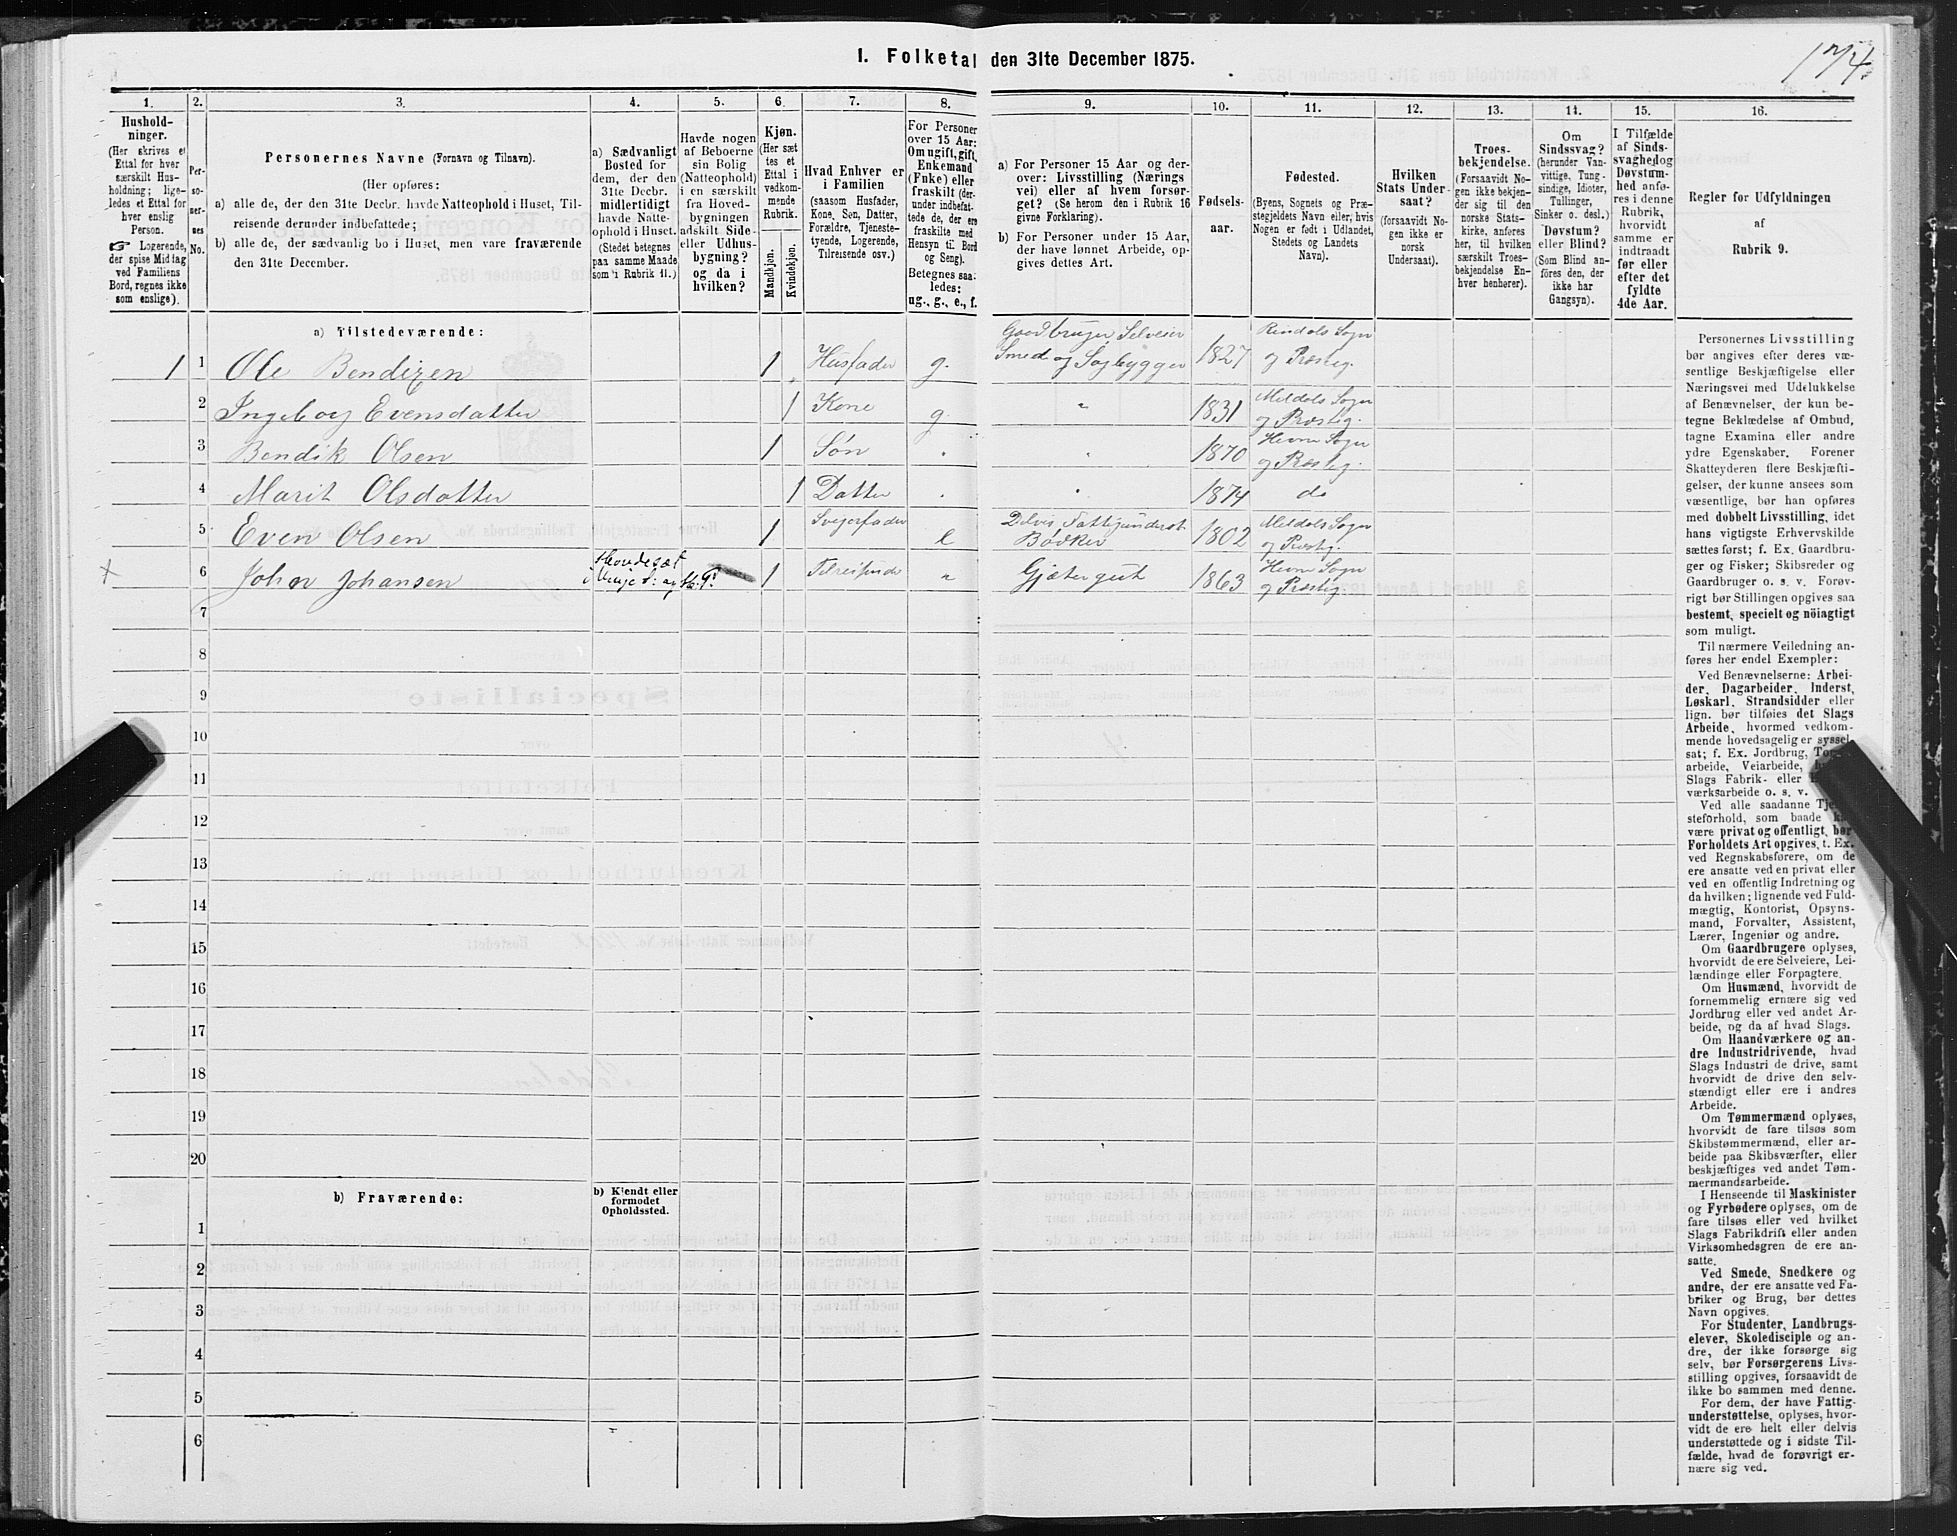 1. Folketal den 31te December 1875.
174
1.
2.
3.
4.
5.
6.
7.
8.
9.
10.
11.
12.
13.
14.
15.
16.
Hushold-
ninger.
(Her skrives et
Ettal for hver
særskilt Hus-
holdning; lige-
ledes et Ettal for
hver enslig
Person.
☞ Logerende,
der spise Middag
ved Familiens
Bord, regnes ikke
som enslige).
Per-
so-
ner-
nes
No.
Personernes Navne (Fornavn og Tilnavn).
(Her opføres:
a) alle de, der den 31te Decbr. havde Natteophold i Huset, Til-
reisende derunder indbefattede;
b) alle de, der sædvanlig bo i Huset, men vare fraværende
den 31te December.
a) Sædvanligt
Bosted for
dem, der den
31te Decbr.
midlertidigt
havde Natte-
ophold i Huset.
(Stedet betegnes
paa samme Maade
som i Rubrik 11.)
Havde nogen
af Beboerne
sin Bolig
(Natteophold)
i en særskilt
fra Hoved-
bygningen
adskilt Side-
eller Udhus-
bygning?
og da i
hvilken?
Kjøn.
(Her sæt
tes et
Ettal i
vedkom-
mende
Rubrik.
Mandkjøn.
Kvindekjøn.
Hvad Enhver er
i Familien
(saasom Husfader,
Kone, Søn, Datter,
Forældre, Tjeneste-
tyende, Logerende,
Tilreisende osv.)
For Personer
over 15 Aar:
Om ugift, gift,
Enkemand
(Enke) eller
fraskilt (der-
under indbefat-
tede de, der ere
fraskilte med
Hensyn til Bord
og Seng).
Betegnes saa-
ledes:
ug., g., e., f.
a) For Personer 15 Aar og der-
over: Livsstilling (Nærings
vei) eller af hvem forsør-
get? (Se herom den i Rubrik 16
givne Forklaring).
b) For Personer under 15 Aar,
der have lønnet Arbeide, op-
gives dettes Art.
Fødsels-
aar.
Fødested.
(Byens, Sognets og Præ-
stegjeldets Navn eller, hvis
Nogen er født i Udlandet,
Stedets og Landets
Navn).
Hvilken
Stats Under-
saat?
(forsaavidt No-
gen ikke er
norsk
Undersaat).
Troes-
bekjendelse.
(Forsaavidt No-
gen ikke bekjen-
der sig til den
norske Stats-
kirke, anføres
her, til hvilken
særskilt Troes-
bekjendelse En-
hver henhører).
Om
Sindssvag?
(herunder Van-
vittige, Tung-
sindige, Idioter,
Tullinger,
Sinker o. desl.)
Døvstum?
eller Blind?
(Som Blind an-
føres den, der
ikke har
Gangsyn).
I Tilfælde
af Sinds-
svaghed og
Døvstum-
hed anfø-
res i denne
Rubrik,
hvorvidt
samme er
indtraadt
før eller
efter det
fyldte
4de Aar.
Regler for Udfyldningen
af
Rubrik 9.
a) Tilstedeværende:
1 1 Ole Bendixen 1 Husfader g. Gaardbruger Selveier Smed og Sagbygger 1827 Rindals Sogn og Præsteg.
2 Ingeborg Evensdatter 1 Kone g. " 1831 Meldals Sogn og Præsteg.
3 Bendik Olsen 1 Søn 1870 Hevne Sogn og Præsteg.
4 Marit Olsdatter 1 Datter 1874 do
5 Even Olsen 1 Svigerfader e Delvis Fattigunderst. Bødker 1802 Meldals Sogn og Præsteg.
6 John Johansen 1 Tilreisende " Gjætergut 1863 Hevne Sogn og Præsteg.
7
8
9
10
11
12
13
14
15
16
17
18
19
20
b) Fraværende:
b) Kjendt eller
formodet
Opholdssted.
1
2
3
4
5
6
Personernes Livsstilling
bør angives efter deres væ-
sentlige Beskjæftigelse eller
Næringsvei med Udelukkelse
af Benævnelser, der kun be-
tegne Beklædelse af Ombud,
tagne Examina eller andre
ydre Egenskaber. Forener
Skatteyderen flere Beskjæfti-
gelser, der kunne ansees som
væsentlige, bør han opføres
med dobbelt Livsstilling, idet
hans vigtigste Erhvervskilde
sættes først; f. Ex. Gaardbru-
ger og Fisker; Skibsreder og
Gaardbruger o. s. v. Forøv-
rigt bør Stillingen opgives saa
bestemt, specielt og nöiagtigt
som muligt.
Til nærmere Veiledning an-
føres her endel Exempler:
Ved Benævnelserne: Arbei-
der, Dagarbeider, Inderst,
Løskarl, Strandsidder eller
lign. bør tilføies det Slags
Arbeide, hvormed vedkom-
mende hovedsagelig er syssel-
sat; f. Ex. Jordbrug,
arbeide, Veiarbeide,
Slags Fabrik- eller
værksarbeide o. s. v.
Ved alle saadanne
steforhold, som baade
være privat og offentligt, bør
Forholdets Art opgives, t. Ex.
ved Regnskabsførere, om de
ere ansatte ved en privat eller
ved en offentlig Indretning og
da hvilken; lignende ved Fuld-
mægtig, Kontorist, Opsyns-
mand, Forvalter, Assistent,
Lærer, Ingeniør og andre.
Om Gaardbrugere oplyses,
hvorvidt de ere Selveiere, Lei-
lændinge eller Forpagtere.
Om Husmænd, hvorvidt de
fornemmelig ernære sig ved
Jordbrug eller ved andet Ar-
beide, og da af hvad Slags.
Om Haandværkere og an-
dre Industridrivende, hvad
Slags Industri de drive, samt
hvorvidt de drive den selv-
stændigt eller ere i andres
Arbeide.
Om Tømmermænd oplyses,
hvorvidt de fare tilsøs som
Skibstømmermænd, eller ar-
beide paa Skibsværfter, eller
beskjæftiges ved andet Tøm-
mermandsarbeide.
I Henseende til Maskinister
og Fyrbødere oplyses, om de
fare tilsøs eller ved hvilket
Slags Fabrikdrift eller anden
Virksomhedsgren de ere an-
satte.
Ved Smede, Snedkere og
andre, der ere ansatte ved Fa-
briker og Brug, bør dettes
Navn opgives.
For Studenter, Landbrugs-
elever, Skoledisciple og an-
dre, der ikke forsørge sig
selv, bør Forsørgerens Livs-
stilling opgives, forsaavidt de
ikke bo sammen med denne.
For dem, der have Fattig-
understøttelse, oplyses, hvor-
vidt de ere helt eller delvis
understøttede og i sidste Til-
fælde, hvad de forøvrigt er-
nære sig ved.